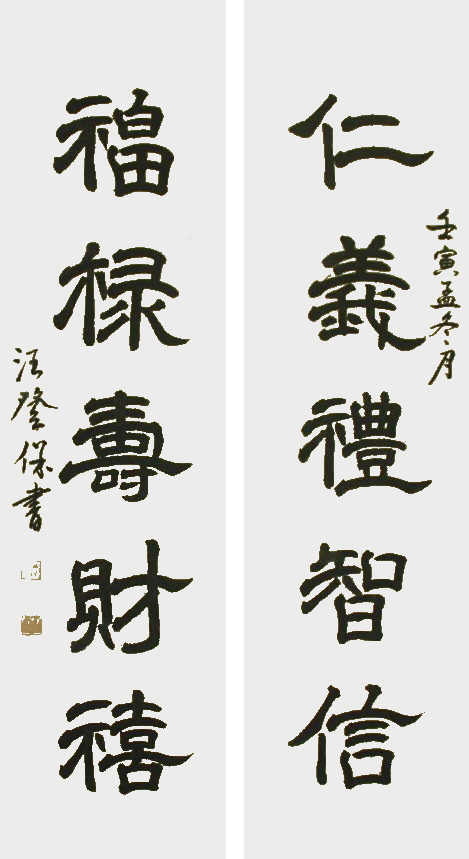 壬寅孟冬月
仁義禮智信
福禄壽財禧
汪登保書